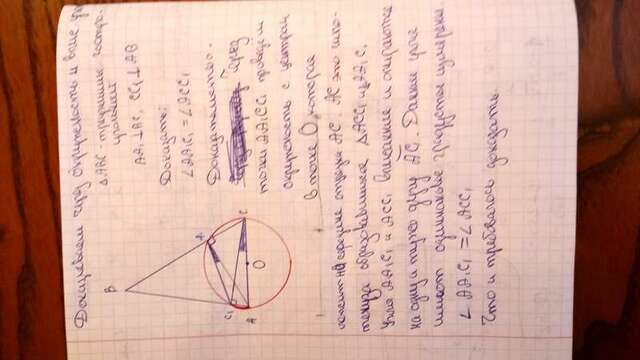 Доказываем через окружность и впис. угл
B
△ABC - треугольник остро-
угольный
AA₁⊥AC, CC₁⊥AB
Доказать:
∠AA₁C₁ = ∠ACC₁
Доказательство.
Через
точки AA₁CC₁ проведем
окружность с центром
в точке O, которая
лежит на середине отрезка AC. AC это гипо-
тенуза образовавшихся △ACC₁ и AA₁C.
Углы AA₁C₁ и ACC₁ вписанные и опираются
на одну и туже дугу AC. Данные углы
имеют одинаковое градусное измерение.
∠AA₁C₁ = ∠ACC₁
Что и требовалось доказать.
A₁
C₁
A
C
O